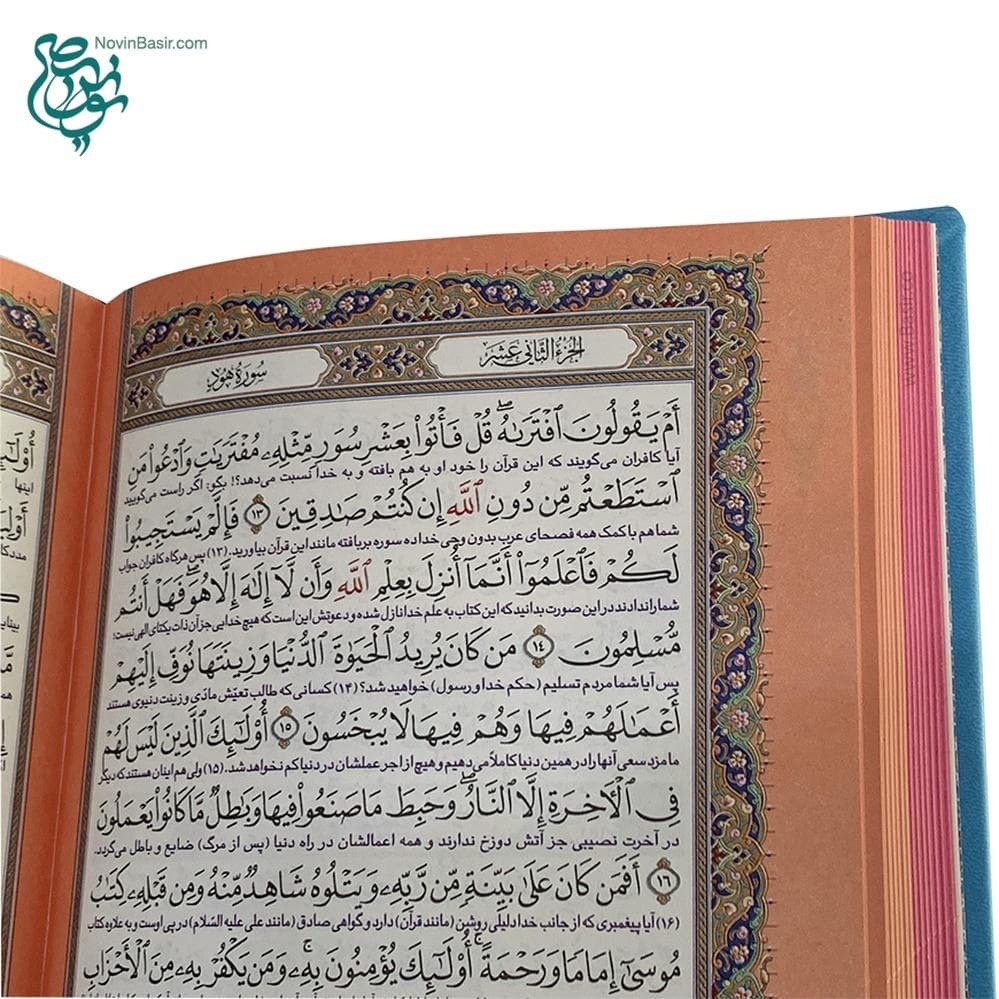 NovinBasir.com
الجزء الثاني عشر
سورة هود
أَمْ يَقُولُونَ ٱفْتَرَىٰهُ ۖ قُلْ فَأْتُوا۟ بِعَشْرِ سُوَرٍ مِّثْلِهِۦ مُفْتَرَيَٰتٍ وَٱدْعُوا۟ مَنِ
آیا کافران می‌گویند که این قرآن را خود او به هم بافته و به خدا نسبت می‌دهد؟! بگو: اگر راست می‌گویید
ٱسْتَطَعْتُم مِّن دُونِ ٱللَّهِ إِن كُنتُمْ صَٰدِقِينَ ۝١٣ فَإِلَّمْ يَسْتَجِيبُوا۟
شما هم با کمک همه فصحای عرب بدون وحی خدا ده سوره بربافته مانند این قرآن بیاورید. (۱۳) پس هرگاه کافران جواب
لَكُمْ فَٱعْلَمُوٓا۟ أَنَّمَآ أُنزِلَ بِعِلْمِ ٱللَّهِ وَأَن لَّآ إِلَٰهَ إِلَّا هُوَ ۖ فَهَلْ أَنتُم
شما را ندادند در این صورت بدانید که این کتاب به علم خدا نازل شده و دعوتش این است که هیچ خدایی جز آن ذات یکتای الهی نیست؛
مُّسْلِمُونَ ۝١٤ مَن كَانَ يُرِيدُ ٱلْحَيَوٰةَ ٱلدُّنْيَا وَزِينَتَهَا نُوَفِّ إِلَيْهِمْ
پس آیا شما مردم تسلیم (حکم خدا و رسول) خواهید شد؟ (۱۴) کسانی که طالب تعیّش مادّی و زینت دنیوی هستند
أَعْمَٰلَهُمْ فِيهَا وَهُمْ فِيهَا لَا يُبْخَسُونَ ۝١٥ أُو۟لَٰٓئِكَ ٱلَّذِينَ لَيْسَ لَهُمْ
ما مزد سعی آنها را در همین دنیا کاملاً می‌دهیم و هیچ از اجر عملشان در دنیا کم نخواهد شد. (۱۵) ولی هم اینان هستند که دیگر
فِى ٱلْءَاخِرَةِ إِلَّا ٱلنَّارُ ۖ وَحَبِطَ مَا صَنَعُوا۟ فِيهَا وَبَٰطِلٌ مَّا كَانُوا۟ يَعْمَلُونَ
در آخرت نصیبی جز آتش دوزخ ندارند و همه اعمالشان در راه دنیا (پس از مرگ) ضایع و باطل می‌گردد.
۝١٦ أَفَمَن كَانَ عَلَىٰ بَيِّنَةٍ مِّن رَّبِّهِۦ وَيَتْلُوهُ شَاهِدٌ مِّنْهُ وَمِن قَبْلِهِۦ كِتَٰبُ
(۱۶) آیا پیغمبری که از جانب خدا دلیلی روشن (مانند قرآن) دارد و گواهی صادق (مانند علی علیه السّلام) در پی اوست و به علاوه کتاب
مُوسَىٰٓ إِمَامًا وَرَحْمَةً ۚ أُو۟لَٰٓئِكَ يُؤْمِنُونَ بِهِۦ ۚ وَمَن يَكْفُرْ بِهِۦ مِنَ ٱلْأَحْزَابِ